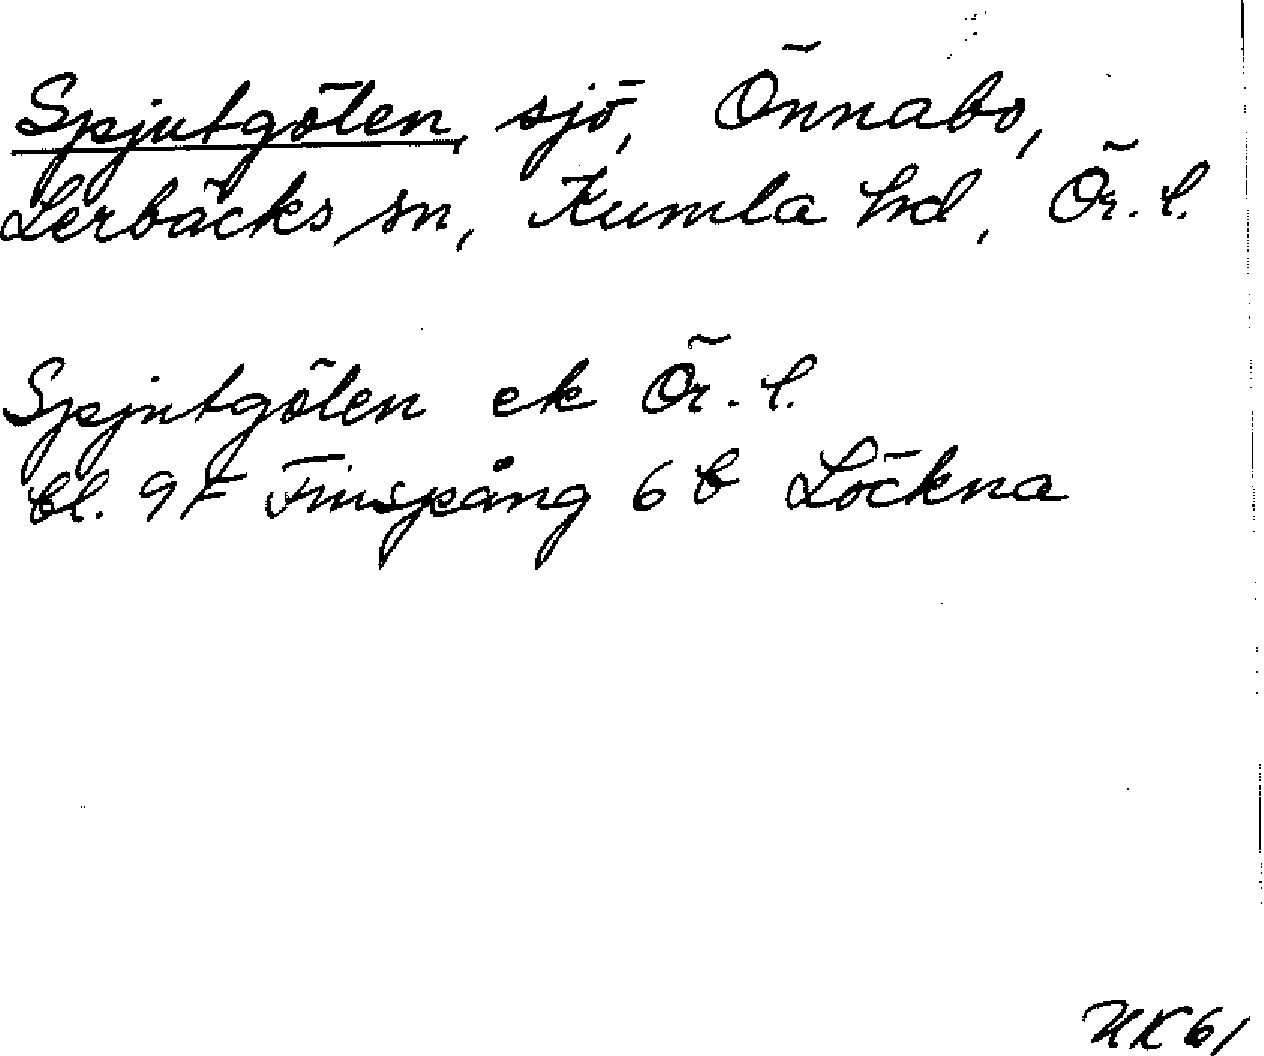 Spjutgölen, sjö, Önnabo,
Lerbäcks sn, Kumla hd, Ör. l.
Spjutgölen ek Ör. l.
bl. 9F Finspång 6 b Löckna
HK 61